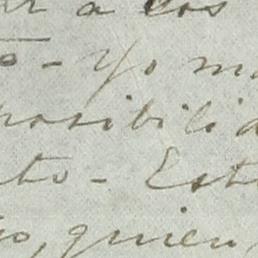 ar a los
o - Yo m
posibilid
to - Est
o, quien